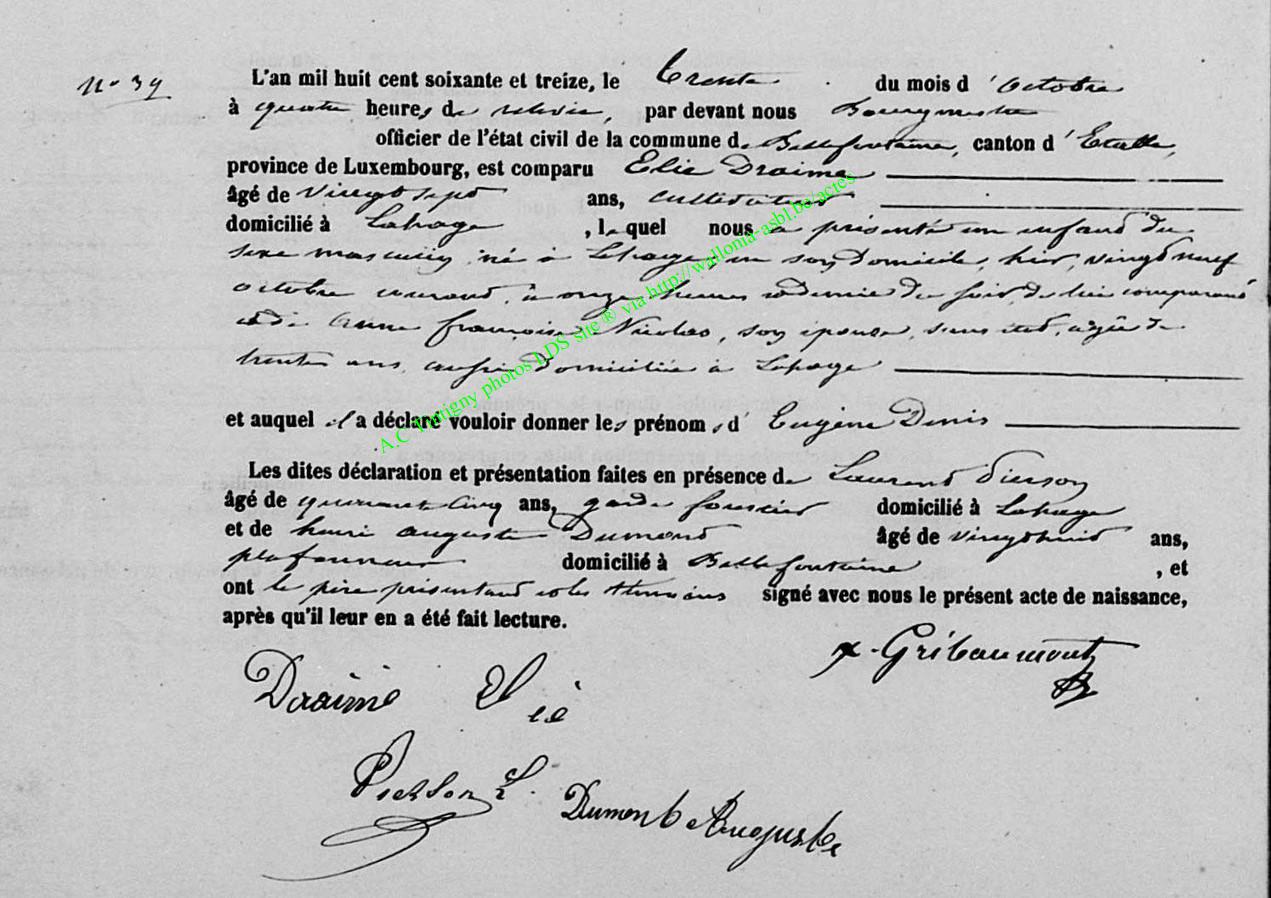 N° 39
L'an mil huit cent soixante et treize, le trente du mois d'octobre
à quatre heures de relevée, par devant nous Bourgmestre
officier de l'état civil de la commune de Bellefontaine, canton d'Etalle,
province de Luxembourg, est comparu Elie Draime
âgé de vingt sept ans, cultivateur
domicilié à Lahage, lequel nous a présenté un enfant du
sexe masculin, né à Lahage, en son domicile, hier, vingt neuf
octobre courant, à onze heures et demie du soir, de lui comparant
et de Anne françoise Nicolas, son épouse, sans état, agée de
trente ans, aussi domiciliée à Lahage
et auquel il a déclaré vouloir donner les prénoms d'Eugène Denis
Les dites déclaration et présentation faites en présence de Laurent Pierson
âgé de quarante cinq ans, garde forestier domicilié à Lahage
et de henri auguste Dumont âgé de vingt huit ans,
plafonneur domicilié à Bellefontaine, et
ont le père présentant et les témoins signé avec nous le présent acte de naissance,
après qu'il leur en a été fait lecture.
x. Gribaumont
Draime Elie
Pierson L.
Dumont Auguste
A.C Tintigny photos LDS site ® via http://wallonia-asbl.be/acres